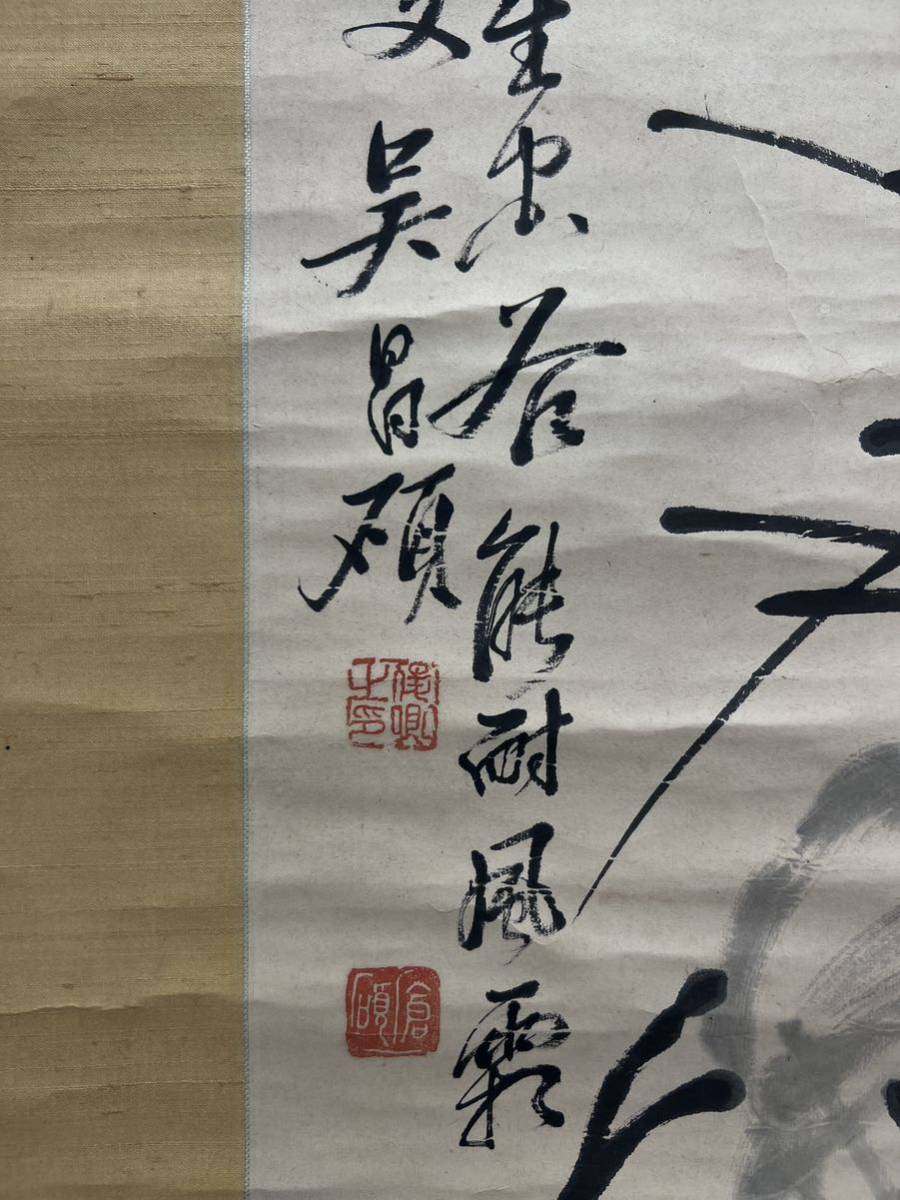 生空谷能耐風霜
吳昌碩
俊卿之印
倉碩